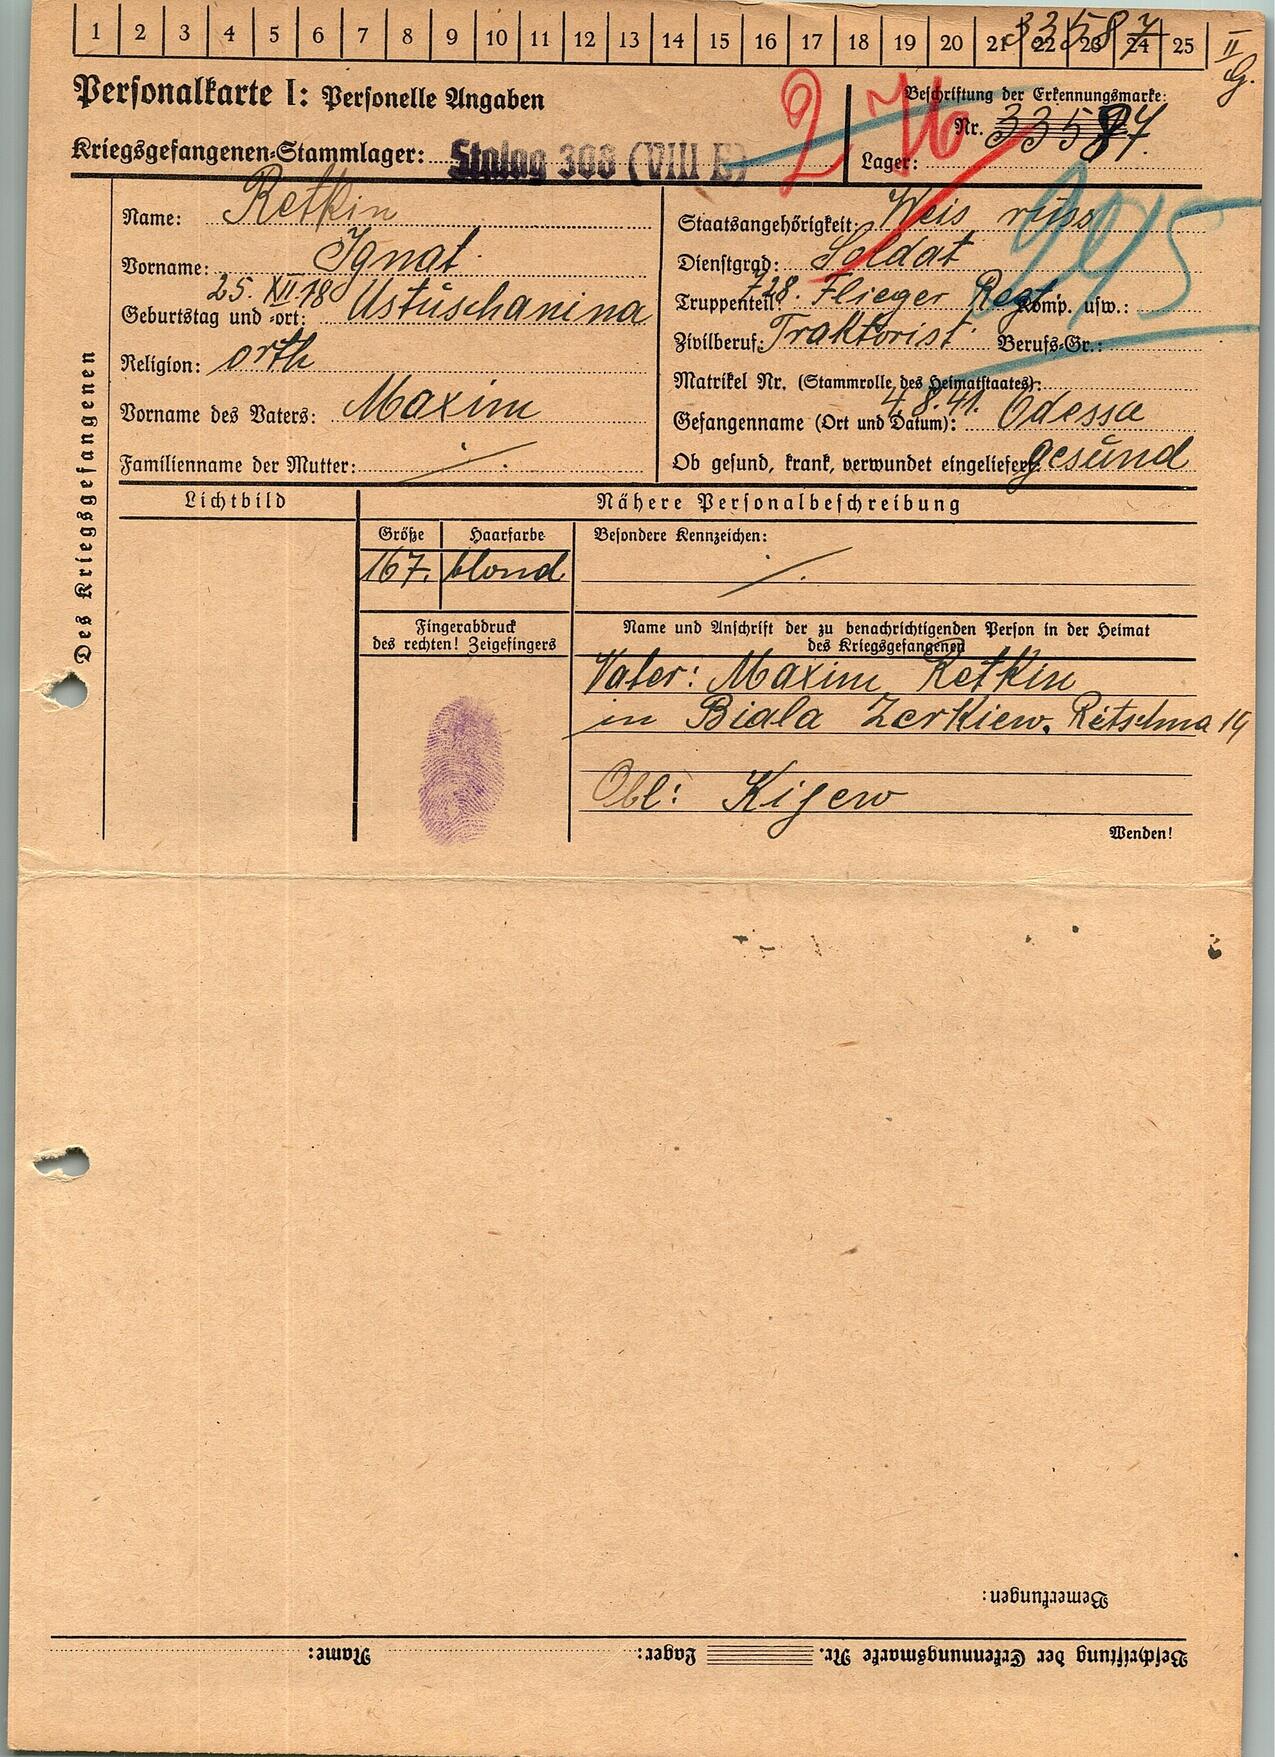 1 2 3 4 5 6 7 8 9 10 11 12 13 14 15 16 17 18 19 20 21 22 23 24 25
33587
II
Personalkarte I: Personelle Angaben
Kriegsgefangenen-Stammlager: Stalag 308 (VIII E)
276
Beschriftung der Erkennungsmarke:
Nr. 33587.
Lager:
Des Kriegsgefangenen
Name: Retkin
Vorname: Ignat
Geburtstag und -ort: 25. XII. 18 Ustuschanina
Religion: orth
Vorname des Vaters: Maxim
Familienname der Mutter: ./.
Staatsangehörigkeit: Weis russ
Dienstgrad: Soldat
Truppenteil: 728. Flieger Regt Komp. usw.:
Zivilberuf: Traktorist Berufs-Gr.:
Matrikel Nr. (Stammrolle des Heimatstaates):
Gefangenname (Ort und Datum): 4.8.41. Odessa
Ob gesund, krank, verwundet eingeliefert: gesund
Lichtbild
Nähere Personalbeschreibung
Größe Haarfarbe Besondere Kennzeichen:
167. blond ./.
Fingerabdruck
des rechten! Zeigefingers
Name und Anschrift der zu benachrichtigenden Person in der Heimat
des Kriegsgefangenen
Vater: Maxim Retkin
in Biala Zerkiew,
Obl: Kijew
Wenden!
Bemerkungen:
Beschriftung der Erkennungsmarke Nr. Lager: Name: